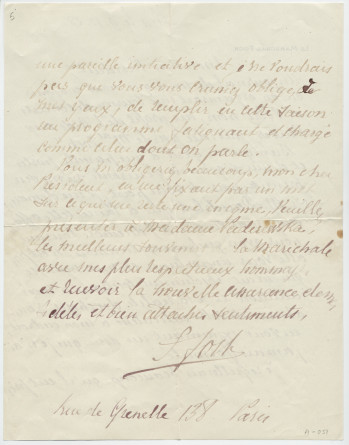 5
une pareille initiative et je ne voudrais
pas que vous vous croyiez obligé
mes yeux, de remplir en cette saison
un programme fatiguant et chargé
comme celui dont on parle.
Vous m'obligerez beaucoup, mon cher
Président, en me fixant par un mot
sur ce qui me reste une énigme. Veuillez
présenter à Madame Paderewska
les meilleurs souvenirs la Maréchale
avec mes plus respectueux hommages
et recevoir la nouvelle assurance de mes
fidèles et bien attachés sentiments,
F. Foch
rue de Grenelle 138 Paris